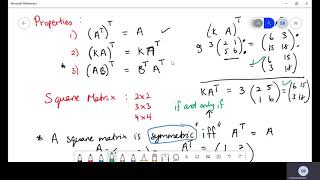 Microsoft Whiteboard
Properties :
1) (A^T)^T = A ✓
2) (KA)^T = K A^T
* 3) (AB)^T = B^T A^T
(K A)^T
9 3 (2 1 / 5 6)^T = (6 3 / 15 18)^T
= (6 15 / 3 18)
KA^T = 3 (2 5 / 1 6) = (6 15 / 3 18)
Square Matrix : 2×2
3×3
4×4
if and only if
* A square matrix is "symmetric" iff A^T = A
A^T = (1 2
SB
SB